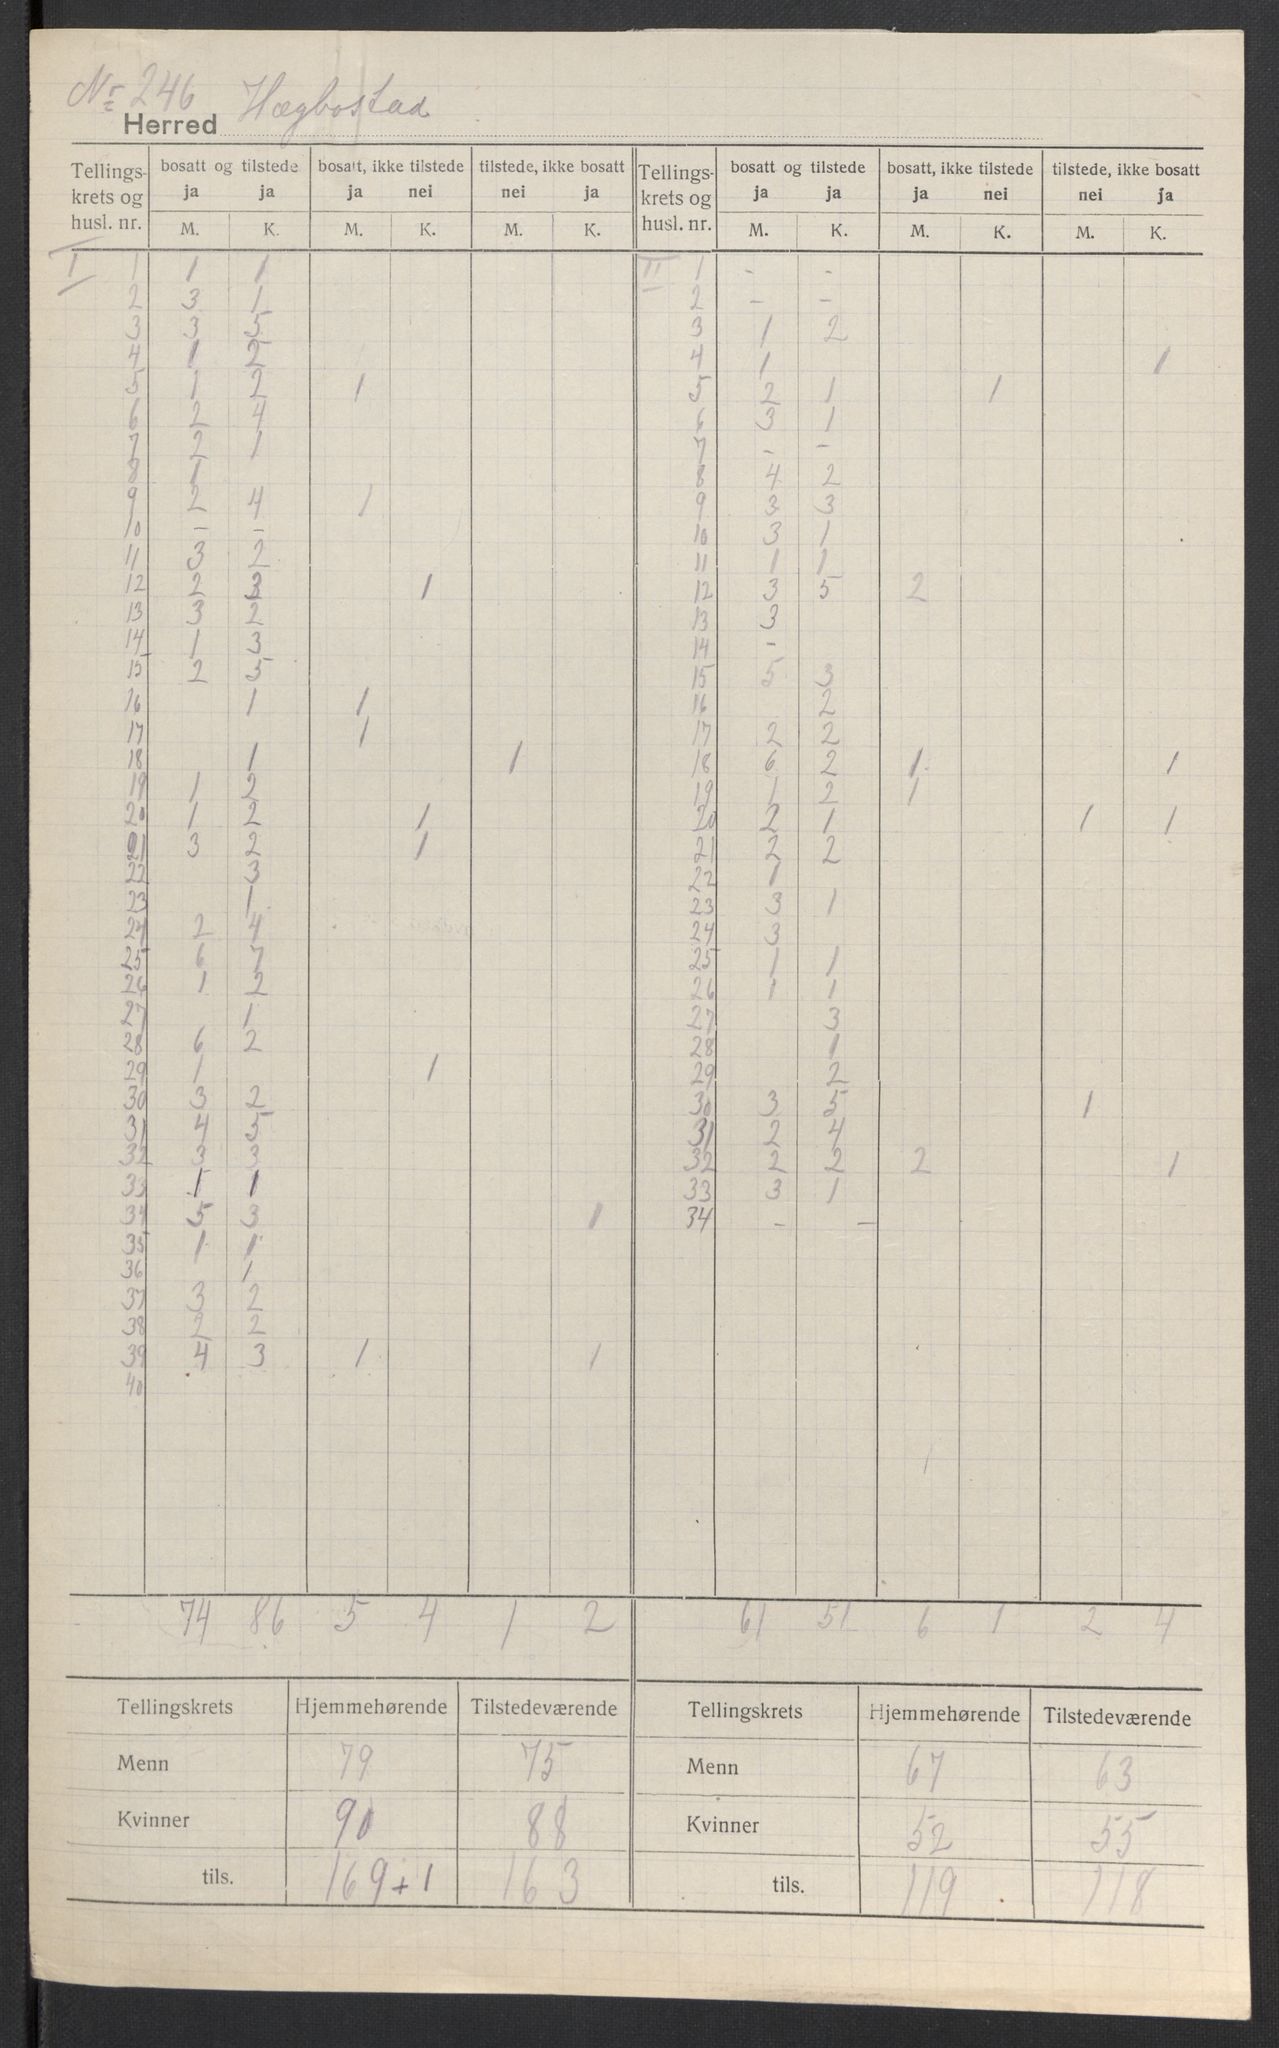 Nr 246 Hægbostad
Herred
Tellings- krets og husl. nr. | bosatt og tilstede | bosatt, ikke tilstede | tilstede, ikke bosatt | Tellings- krets og husl. nr. | bosatt og tilstede | bosatt, ikke tilstede | tilstede, ikke bosatt
ja ja ja nei nei ja ja ja ja nei nei ja
M. K. M. K. M. K. M. K. M. K. M. K.
I 1 1 1 II 1 - -
2 3 1 2 - -
3 3 5 3 1 2
4 1 2 4 1 1
5 1 2 1 5 2 1 1
6 2 4 6 3 1
7 2 1 7 - -
8 1 8 4 2
9 2 4 1 9 3 3
10 - - 10 3 1
11 3 2 11 1 1
12 2 3 1 12 3 5 2
13 3 2 13 3
14 1 3 14 -
15 2 5 15 5 3
16 1 1 16 2
17 1 17 2 2
18 1 1 18 6 2 1 1
19 1 2 19 1 2 1
20 1 2 1 20 2 1 1 1
21 3 2 1 21 2 2
22 3 22 1
23 1 23 3 1
24 2 4 24 3
25 6 7 25 1 1
26 1 2 26 1 1
27 1 27 3
28 6 2 28 1
29 1 1 29 2
30 3 2 30 3 5 1
31 4 5 31 2 4
32 3 3 32 2 2 2 1
33 1 1 33 3 1
34 5 3 1 34 - -
35 1 1
36 1
37 3 2
38 2 2
39 4 3 1 1
40
1
74 86 5 4 1 2 61 51 6 1 2 4
Tellingskrets Hjemmehørende Tilstedeværende Tellingskrets Hjemmehørende Tilstedeværende
Menn 79 75 Menn 67 63
Kvinner 90 88 Kvinner 52 55
tils. 169+1 163 tils. 119 118